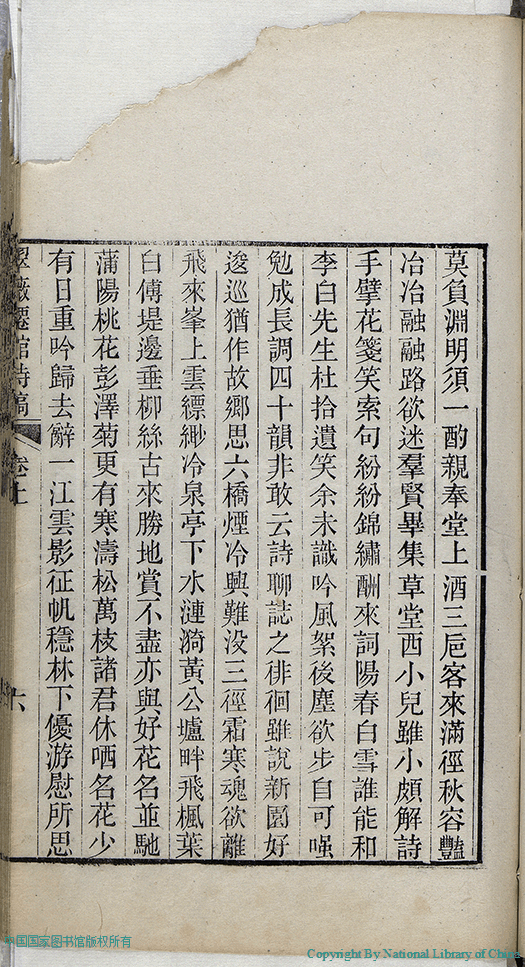 莫負淵明須一酌親奉堂上酒三巵客來滿徑秋容豔
冶冶融融路欲迷羣賢畢集草堂西小兒雖小頗解詩
手擘花箋笑索句紛紛錦繡酬來詞陽春白雪誰能和
李白先生杜拾遺笑余未識吟風絮後塵欲步自可嗤
勉成長調四十韻非敢云詩聊誌之徘徊雖說新園好
逡巡猶作故鄉思六橋煙冷興難没三徑霜寒魂欲離
飛來峯上雲縹緲冷泉亭下水漣漪黃公壚畔飛楓葉
白傅堤邊垂柳絲古來勝地賞不盡亦與好花名並馳
蒲陽桃花彭澤菊更有寒濤松萬枝諸君休哂名花少
有日重吟歸去辭一江雲影征帆穩林下優游慰所思
館詩稿 卷上
六
中国国家图书馆版权所有
Copyright By National Library of China